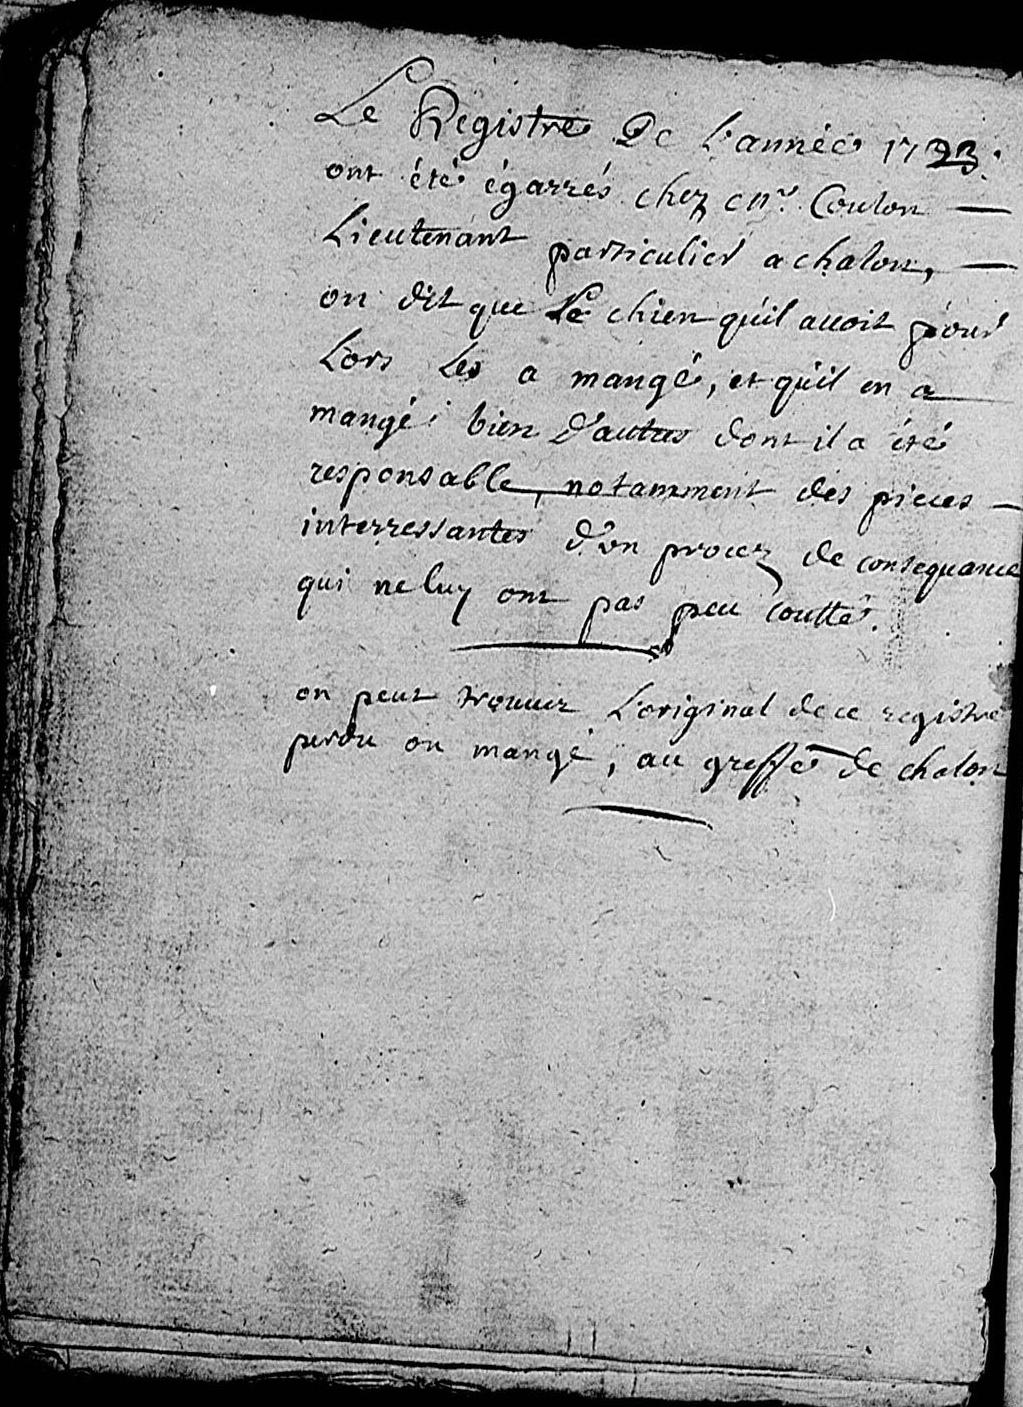 Le Registre De L'année 1723.
ont été égarrés chez mr. Coulon —
Lieutenant particulier a chalon, —
on dit que Le chien qu'il auoit pour
Lors Les a mangé, et qu'il en a
mangé bien d'autres dont il a été
responsable, notamment des pieces —
interressantes d'un procez de consequance
qui ne luy ont pas peu coutté.
on peut trouuer L'original de ce registre
perdu ou mangé, au greffe de chalon